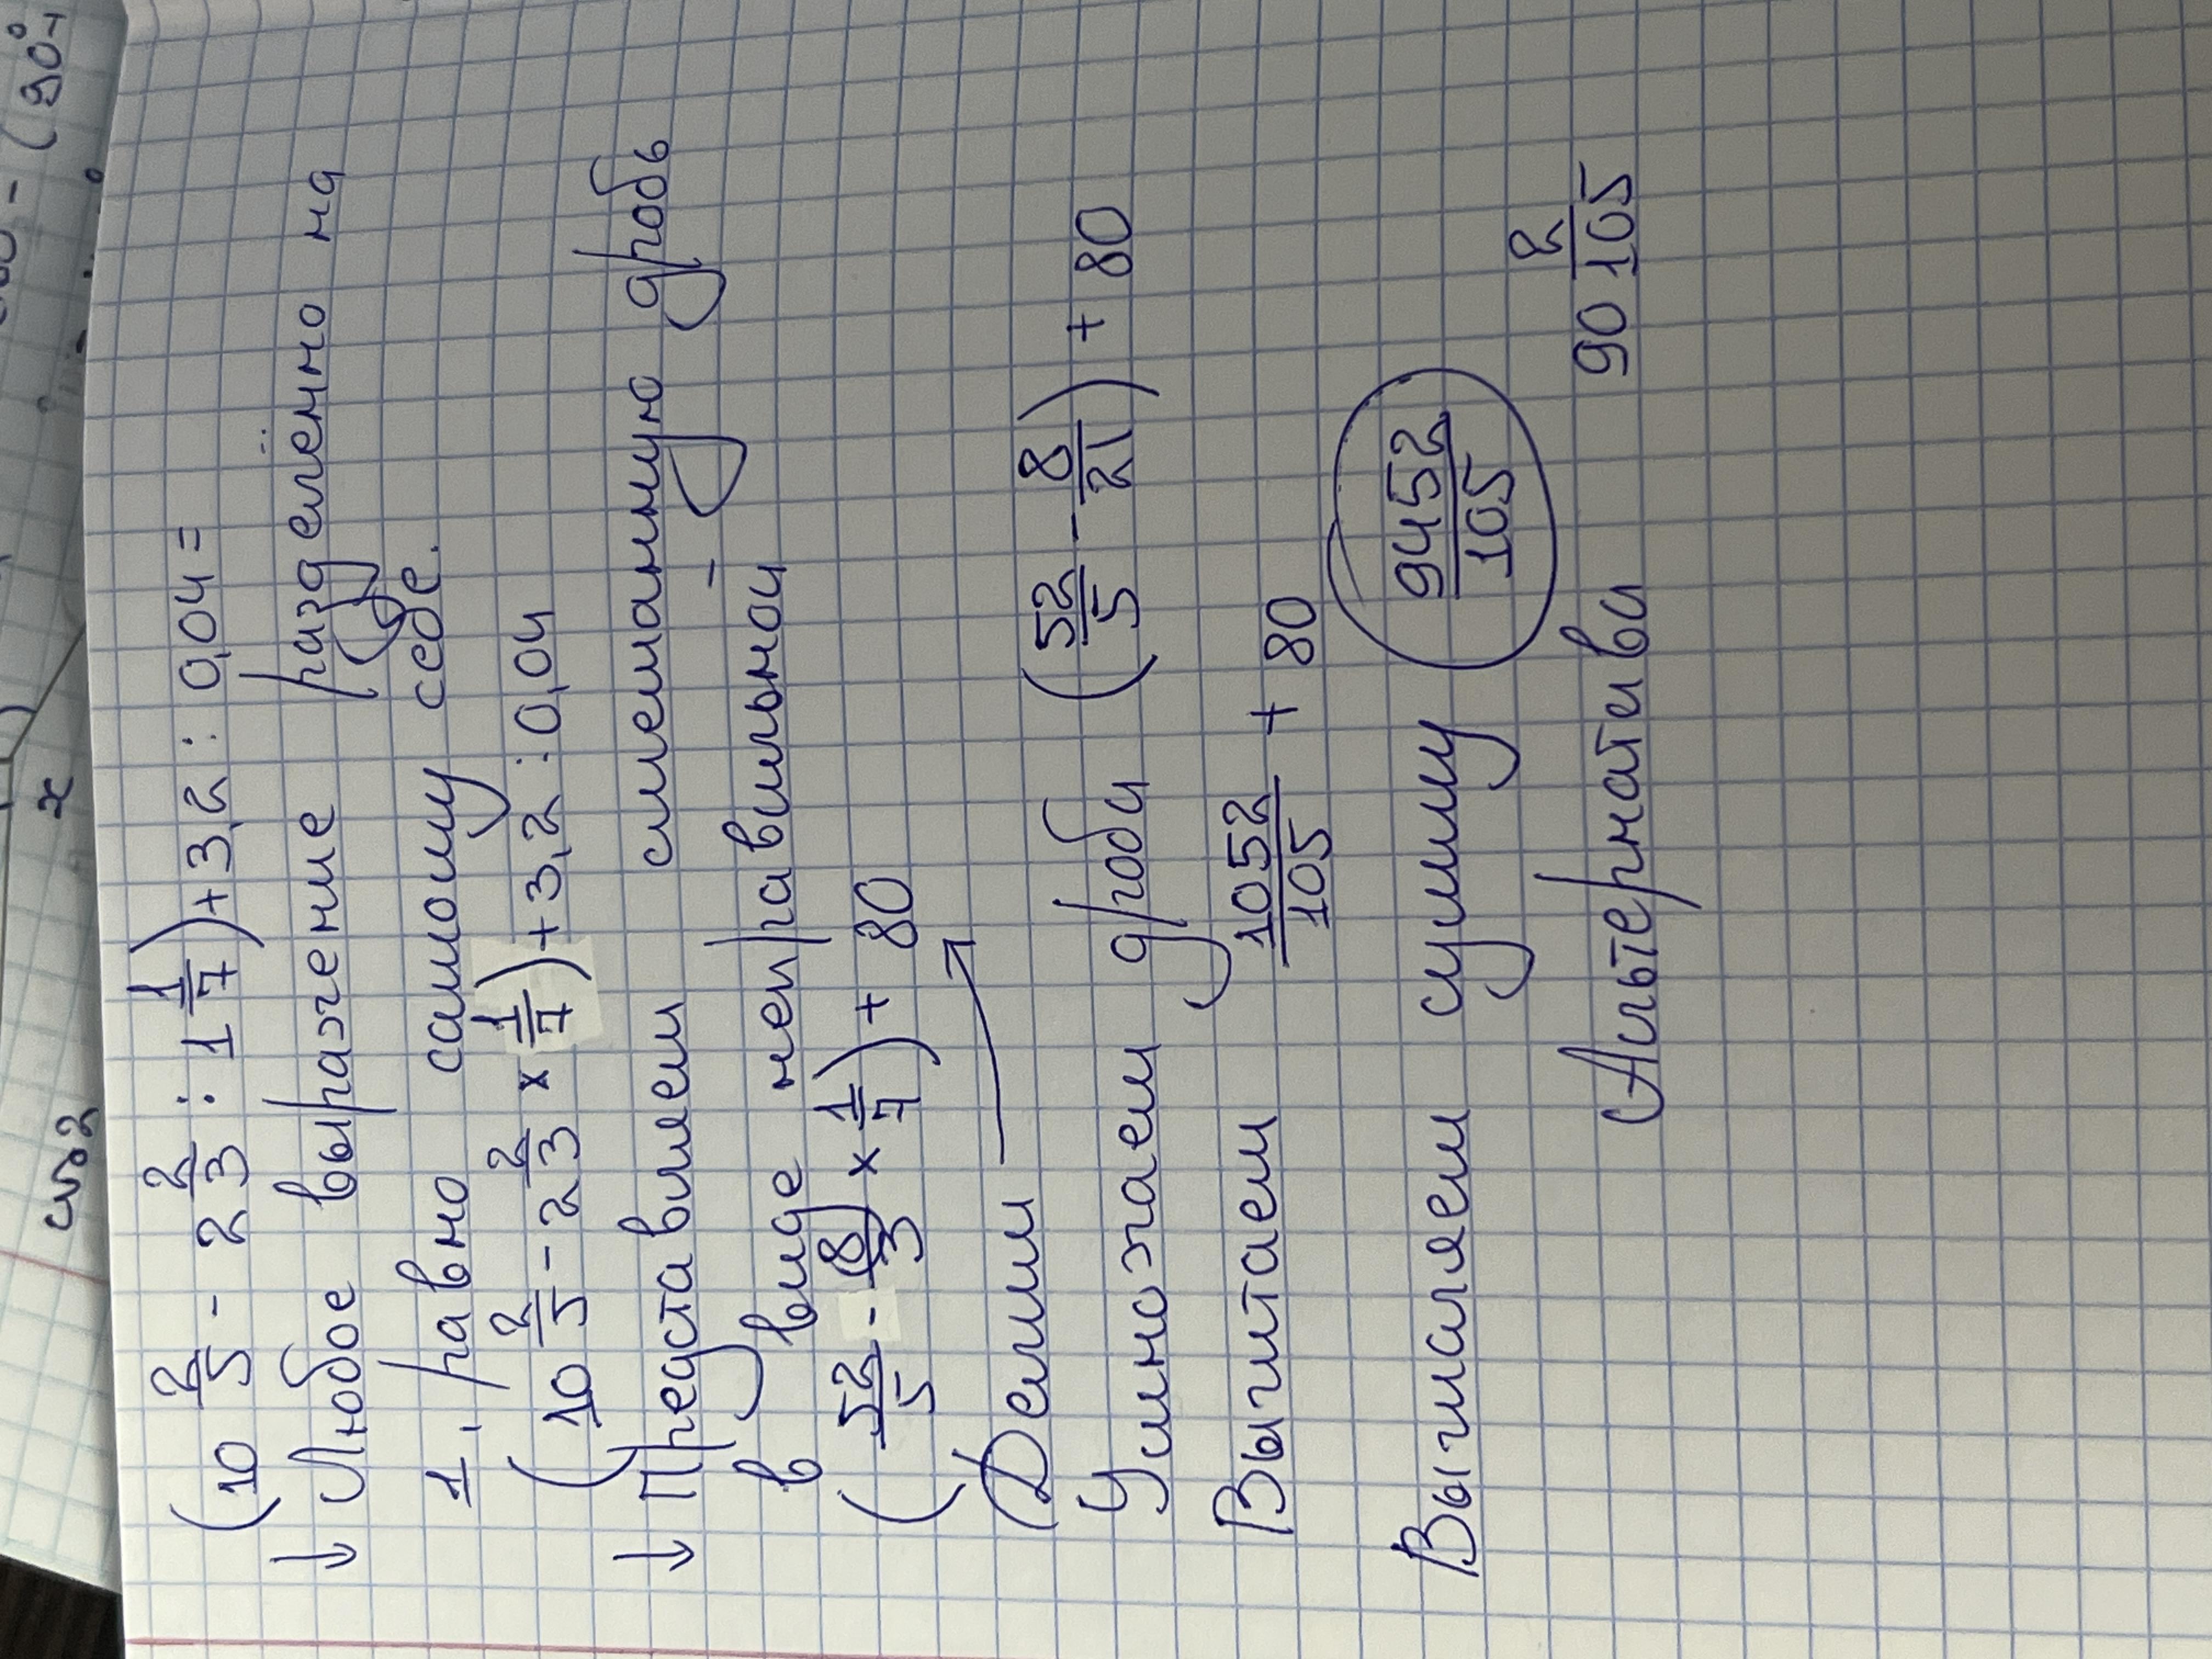 (10 2/5 - 2 2/3 : 1 1/7) + 3,2 : 0,04 =
↓ Любое выражение разделённо на
1, равно самому себе.
(10 2/5 - 2 2/3 × 1/7) + 3,2 : 0,04
↓ Представляем смешанную дробь
в виде неправильной
(52/5 - 8/3 × 1/7) + 80
Делим →
Умножаем дроби (52/5 - 8/21) + 80
Вычитаем 1052/105 + 80
Вычисляем сумму 9452/105
Альтернативы 90 2/105